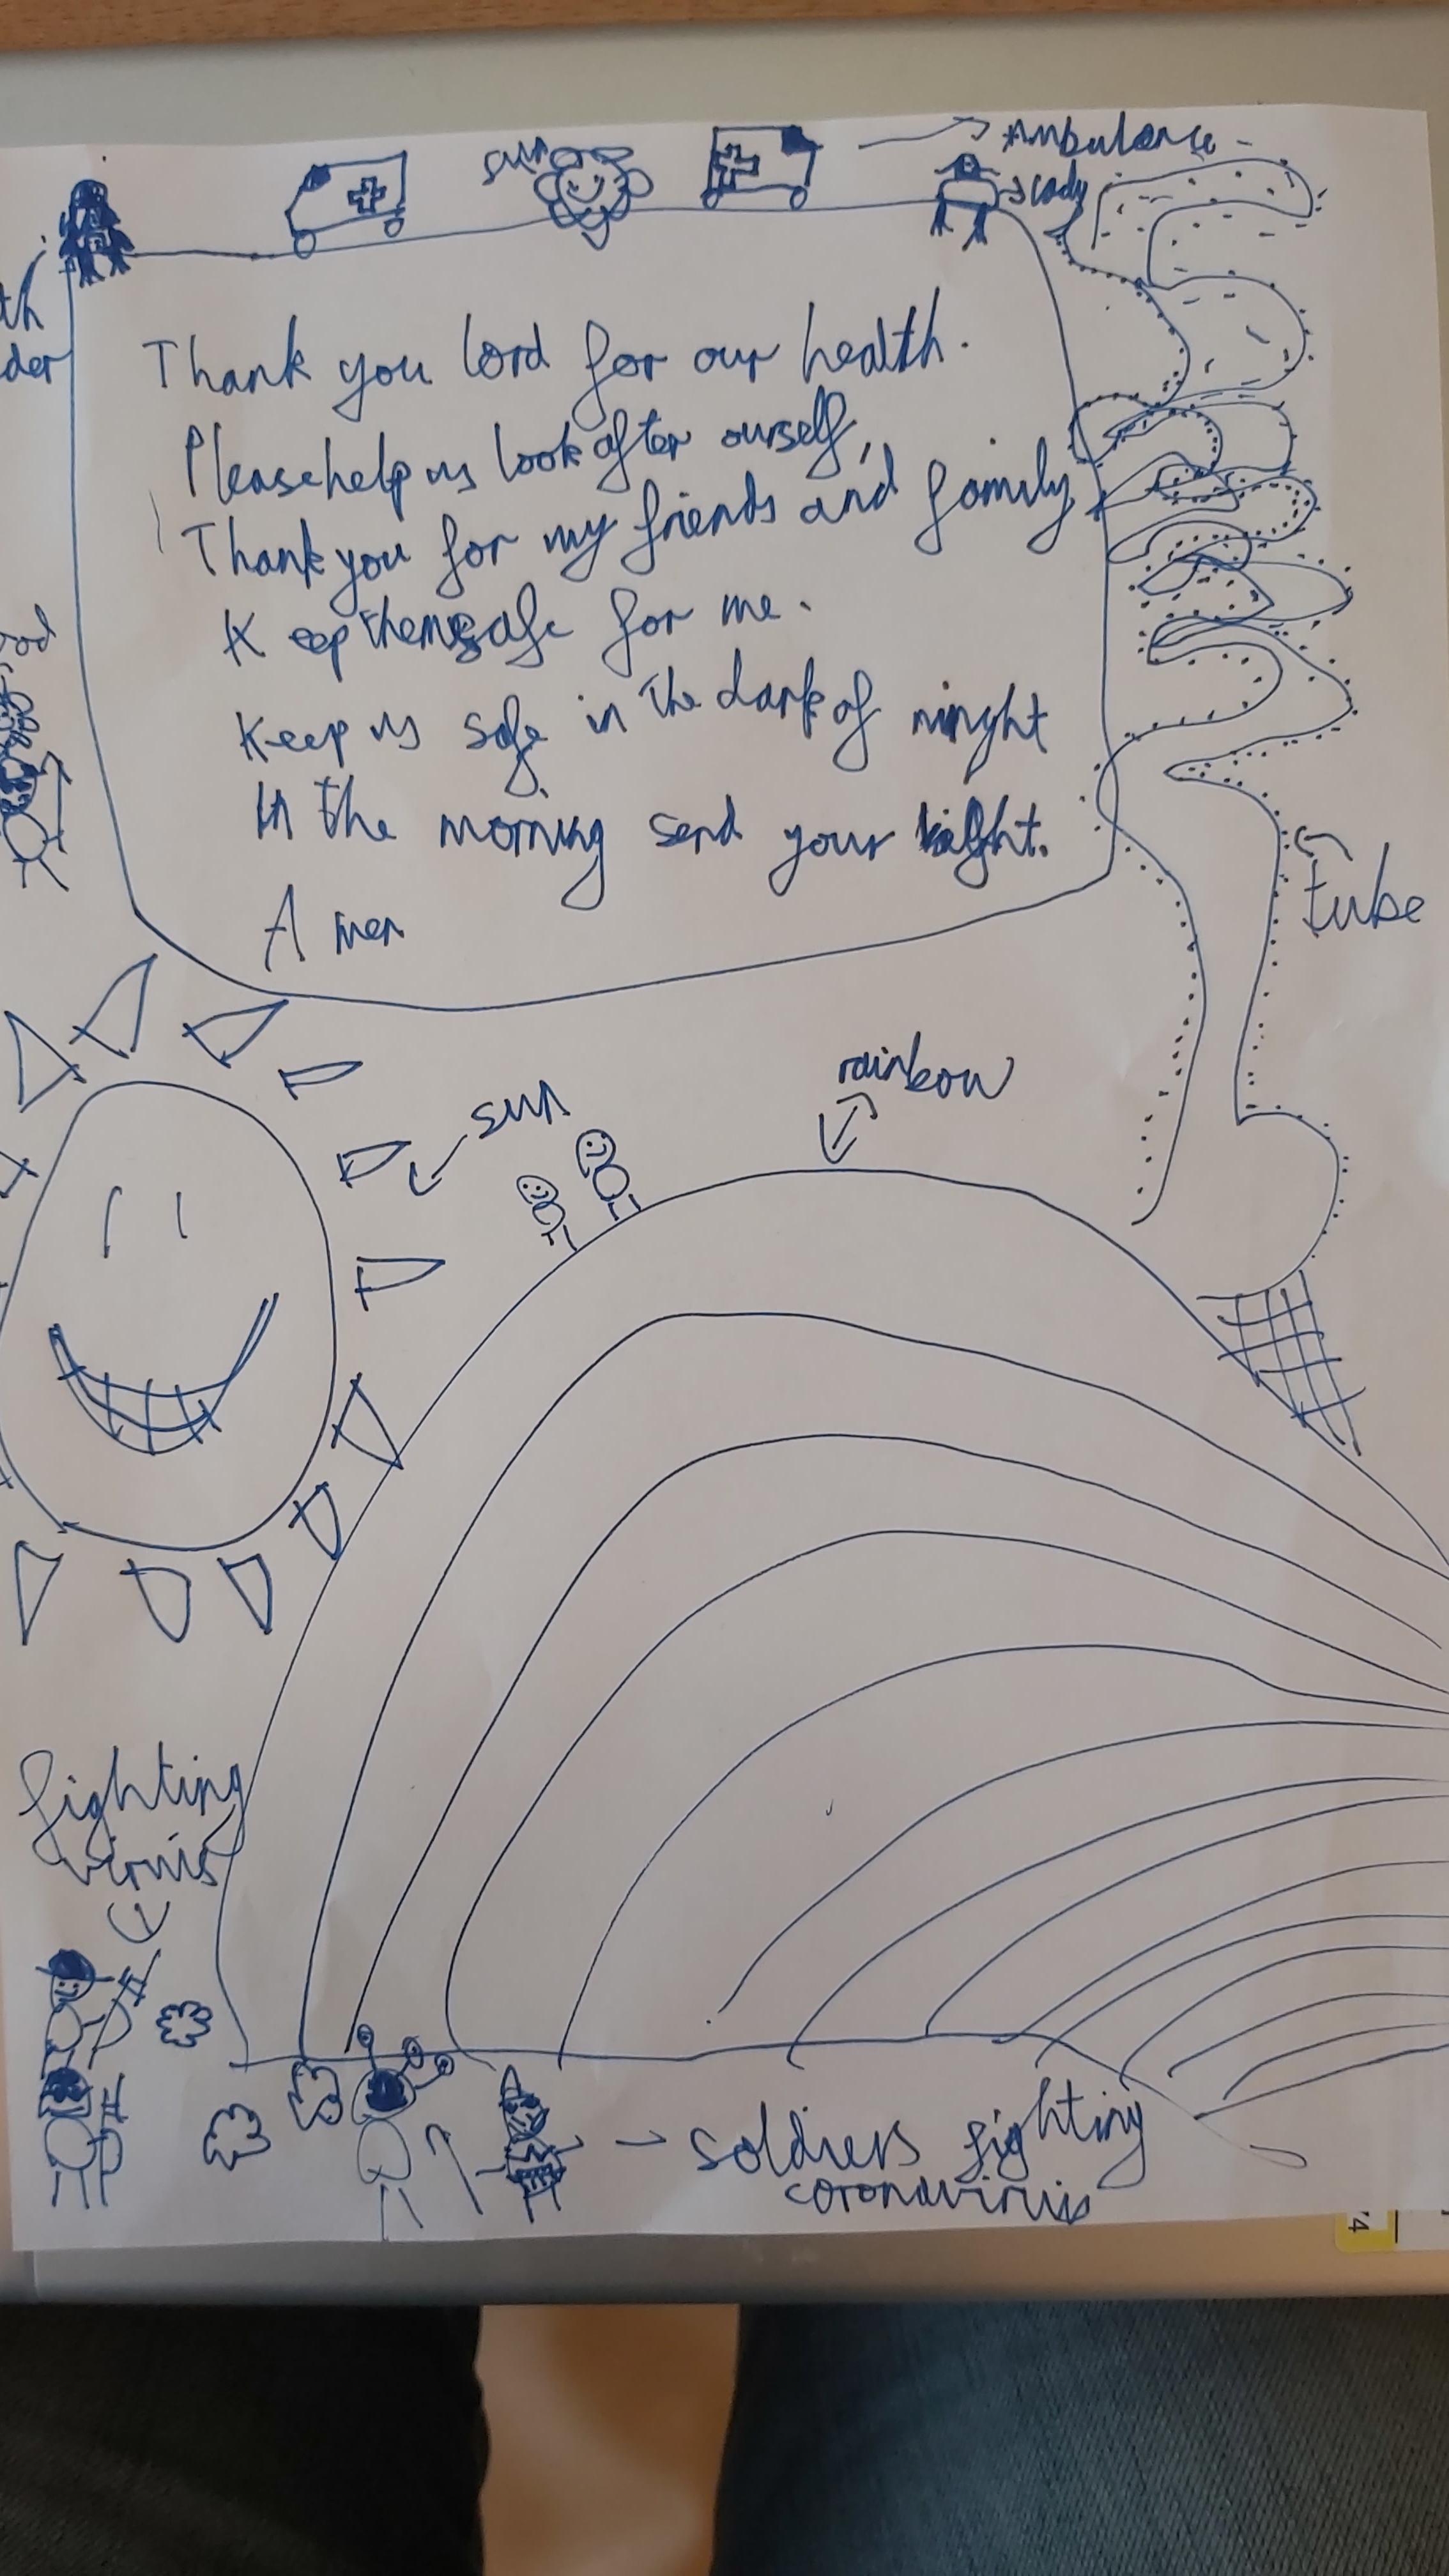 sun
Ambulance
Thank you lord for our health.
Please help us look after ourself,
Thank you for my friends and family
Keep them safe for me.
Keep us safe in the dark of ninght
In the morning send your light.
Amen
tube
rainbow
sun
fighting
virus
soldiers fighting
coronavirus